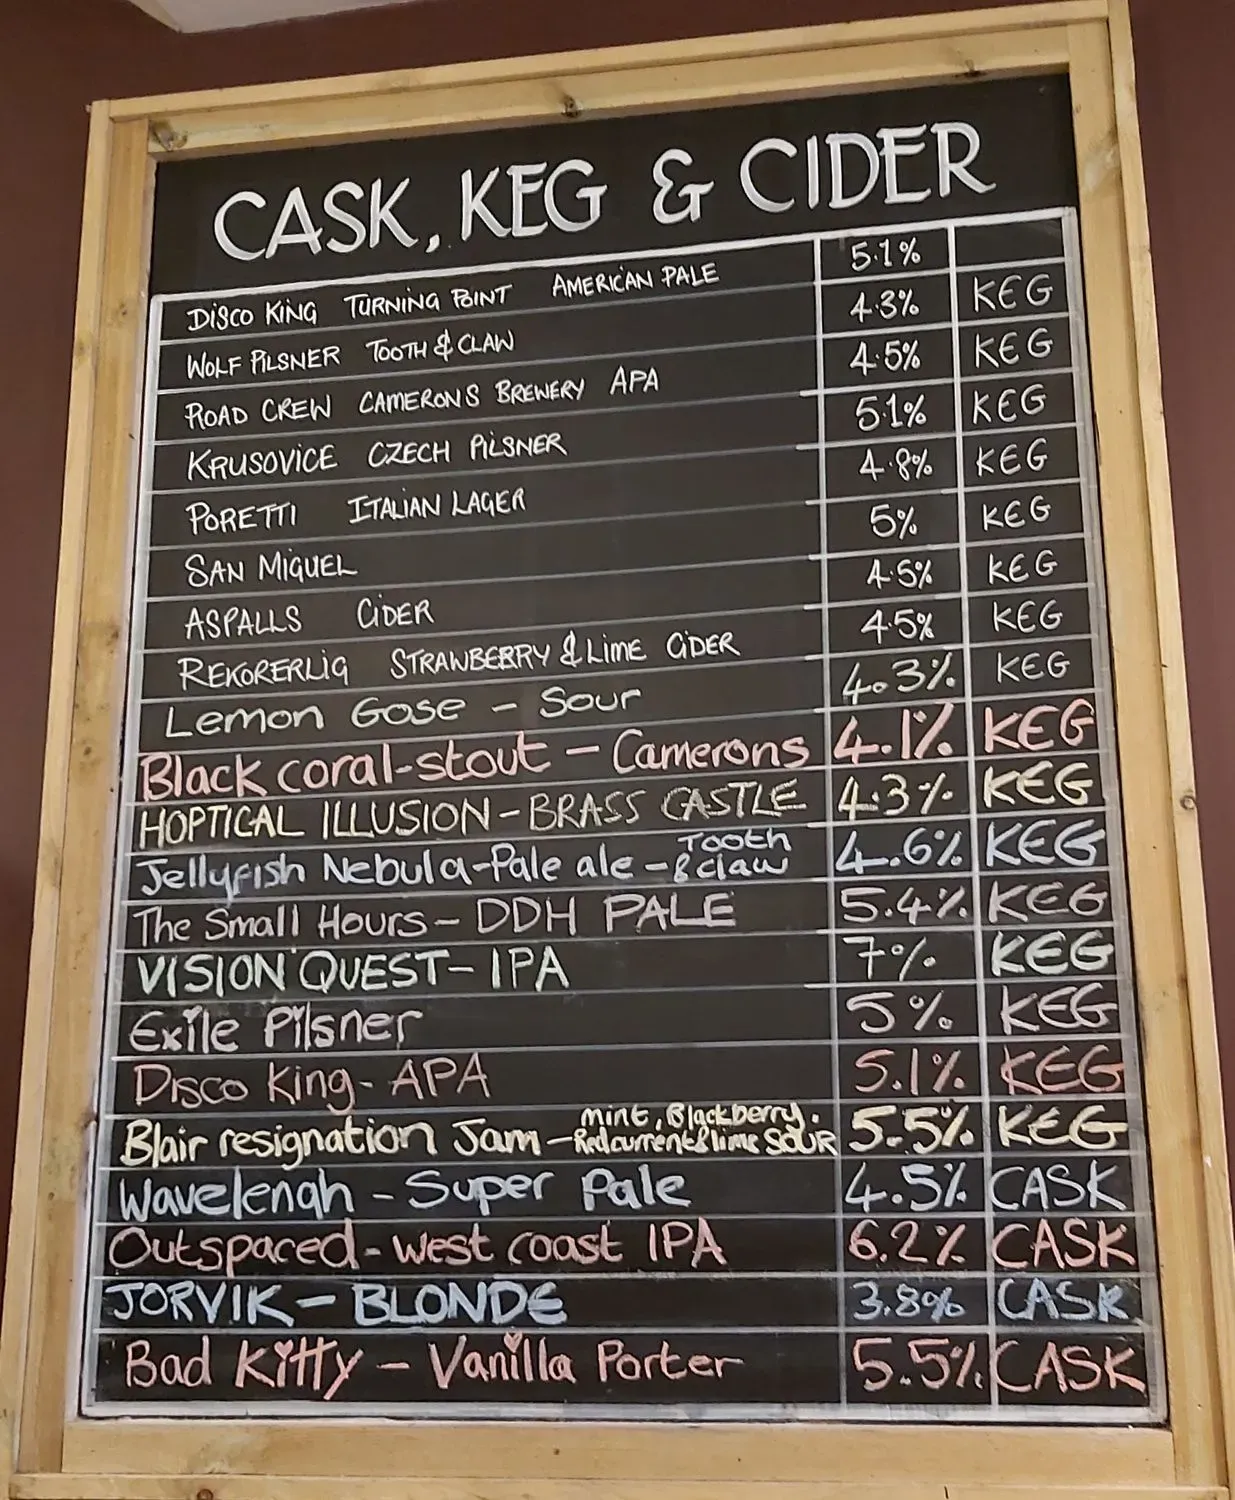 CASK, KEG & CIDER
DISCO KING TURNING POINT AMERICAN PALE 5.1%
WOLF PILSNER TOOTH & CLAW 4.3% KEG
ROAD CREW CAMERONS BREWERY APA 4.5% KEG
KRUSOVICE CZECH PILSNER 5.1% KEG
PORETTI ITALIAN LAGER 4.8% KEG
SAN MIGUEL 5% KEG
ASPALLS CIDER 4.5% KEG
REKORERLIG STRAWBERRY & LIME CIDER 4.5% KEG
Lemon Gose - Sour 4.3% KEG
Black coral-stout - Camerons 4.1% KEG
HOPTICAL ILLUSION - BRASS CASTLE 4.3% KEG
Jellyfish Nebula-Pale ale - Tooth & claw 4.6% KEG
The Small Hours - DDH PALE 5.4% KEG
VISION QUEST - IPA 7% KEG
Exile Pilsner 5% KEG
Disco King - APA 5.1% KEG
Blair resignation Jam - mint, Blackberry. Redcurrent & lime SOUR 5.5% KEG
Wavelengh - Super Pale 4.5% CASK
Outspaced - west coast IPA 6.2% CASK
JORVIK - BLONDE 3.8% CASK
Bad Kitty - Vanilla Porter 5.5% CASK